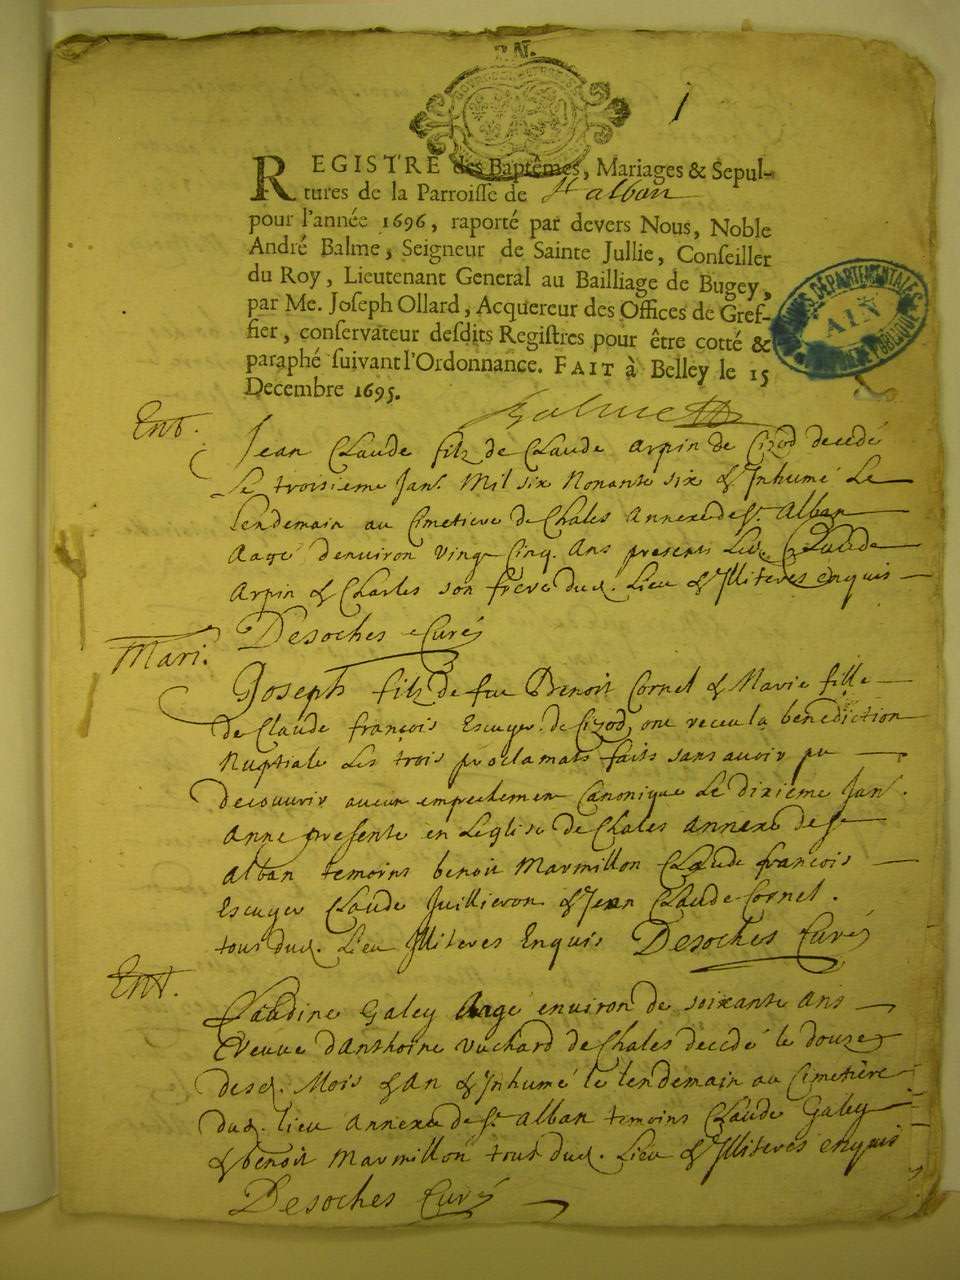 P. N.
1
REGISTRE des Baptêmes, Mariages & Sepul-
tures de la Parroisse de St alban
pour l'année 1696, raporté par devers Nous, Noble
André Balme, Seigneur de Sainte Jullie, Conseiller
du Roy, Lieutenant General au Bailliage de Bugey,
par Me. Joseph Ollard, Acquereur des Offices de Gref-
fier, conservateur desdits Registres pour être cotté &
paraphé suivant l'Ordonnance. FAIT à Belley le 15
Decembre 1695.
ARCHIVES DÉPARTEMENTALES
AIN
Balme
Ent.
Jean Claude filz de Claude Arpin de Cizod decedé
Le troisieme Janr. Mil six Nonante six & Inhumé Le
Lendemain au Cimetiere de Chales Annexe de St. Alban
Aagé denviron vingt Cinq. Ans presents Led. Claude
Arpin & Charles son frere dud. Lieu & Illiteres enquis
Desoches Curé
Mari.
Joseph filz de feu Benoit Cornel & Marie fille
de Claude françois Escuyer de Cizod, ont receu la benediction
Nuptiale Les trois proclamats faits sans avoir pu
decouvrir aucun empechement Canonique Le dixieme Janr.
Anne presente en Leglise de Chales Annexe de St
Alban temoins benoit Marmillon Claude françois
Escuyer Claude Juillieron & Jean Claude Cornel.
tous dud. Lieu Illiteres Enquis Desoches Curé
Ent.
Claudine Galey Aagé environ de soixante ans
Veuve dAnthoine Vuchard de Chales decedé le douze
desd. Mois & An & Inhumé le lendemain au Cimetière
dud. lieu Annexe de St. Alban temoins Claude Galey
& benoit Marmillon tous dud. Lieu & Illiteres enquis
Desoches Curé